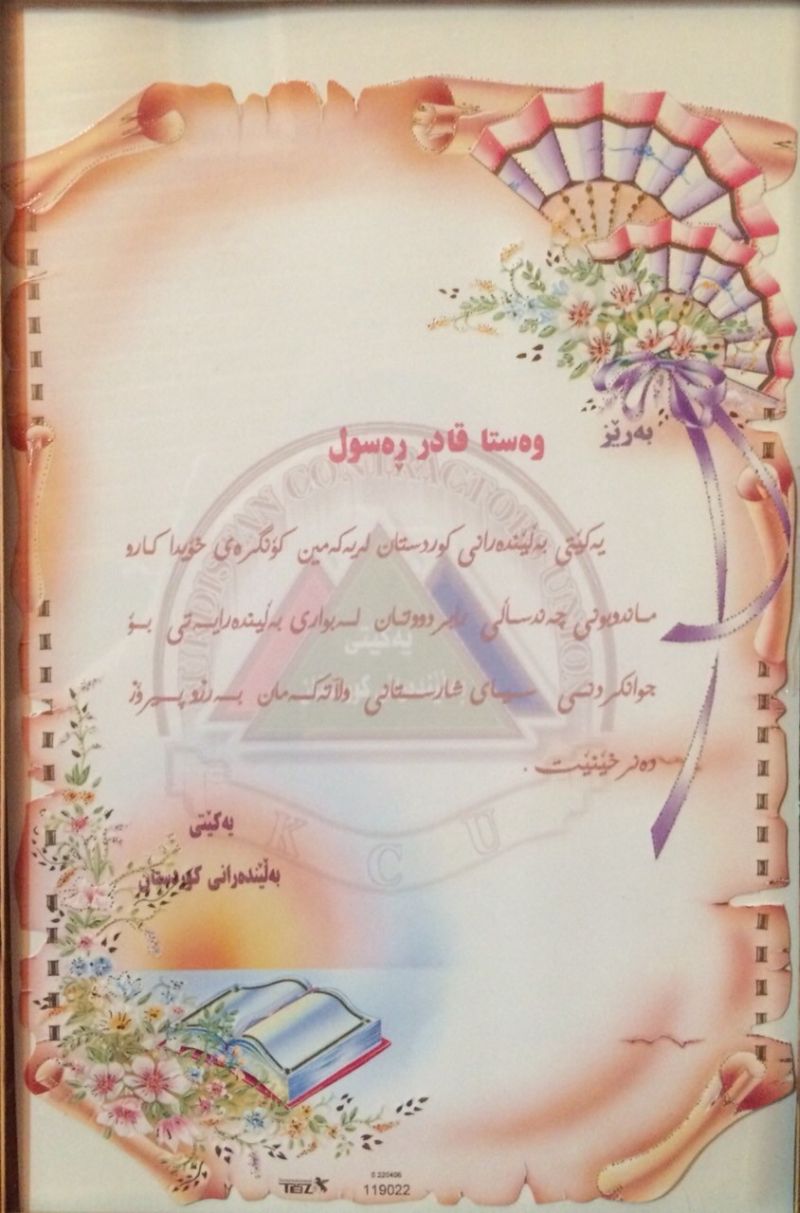 بەرێز وەستا قادر ڕەسول
یەکێتی بەڵێندەرانی کوردستان لەیەکەمین کۆنگرەی خۆیدا کارو
ماندوبونی چەندساڵی ڕابردووتان لەبواری بەڵیندەرایەتی بۆ
جوانکردنی سیمای شارستانی وڵاتەکەمان بەرزو پیرۆز
دەنرخێنێت .
یەکێتی
بەڵێندەرانی کوردستان
KURDISTAN CONTRACTORS UNION
یەکێتی
K C U
0 220406
119022